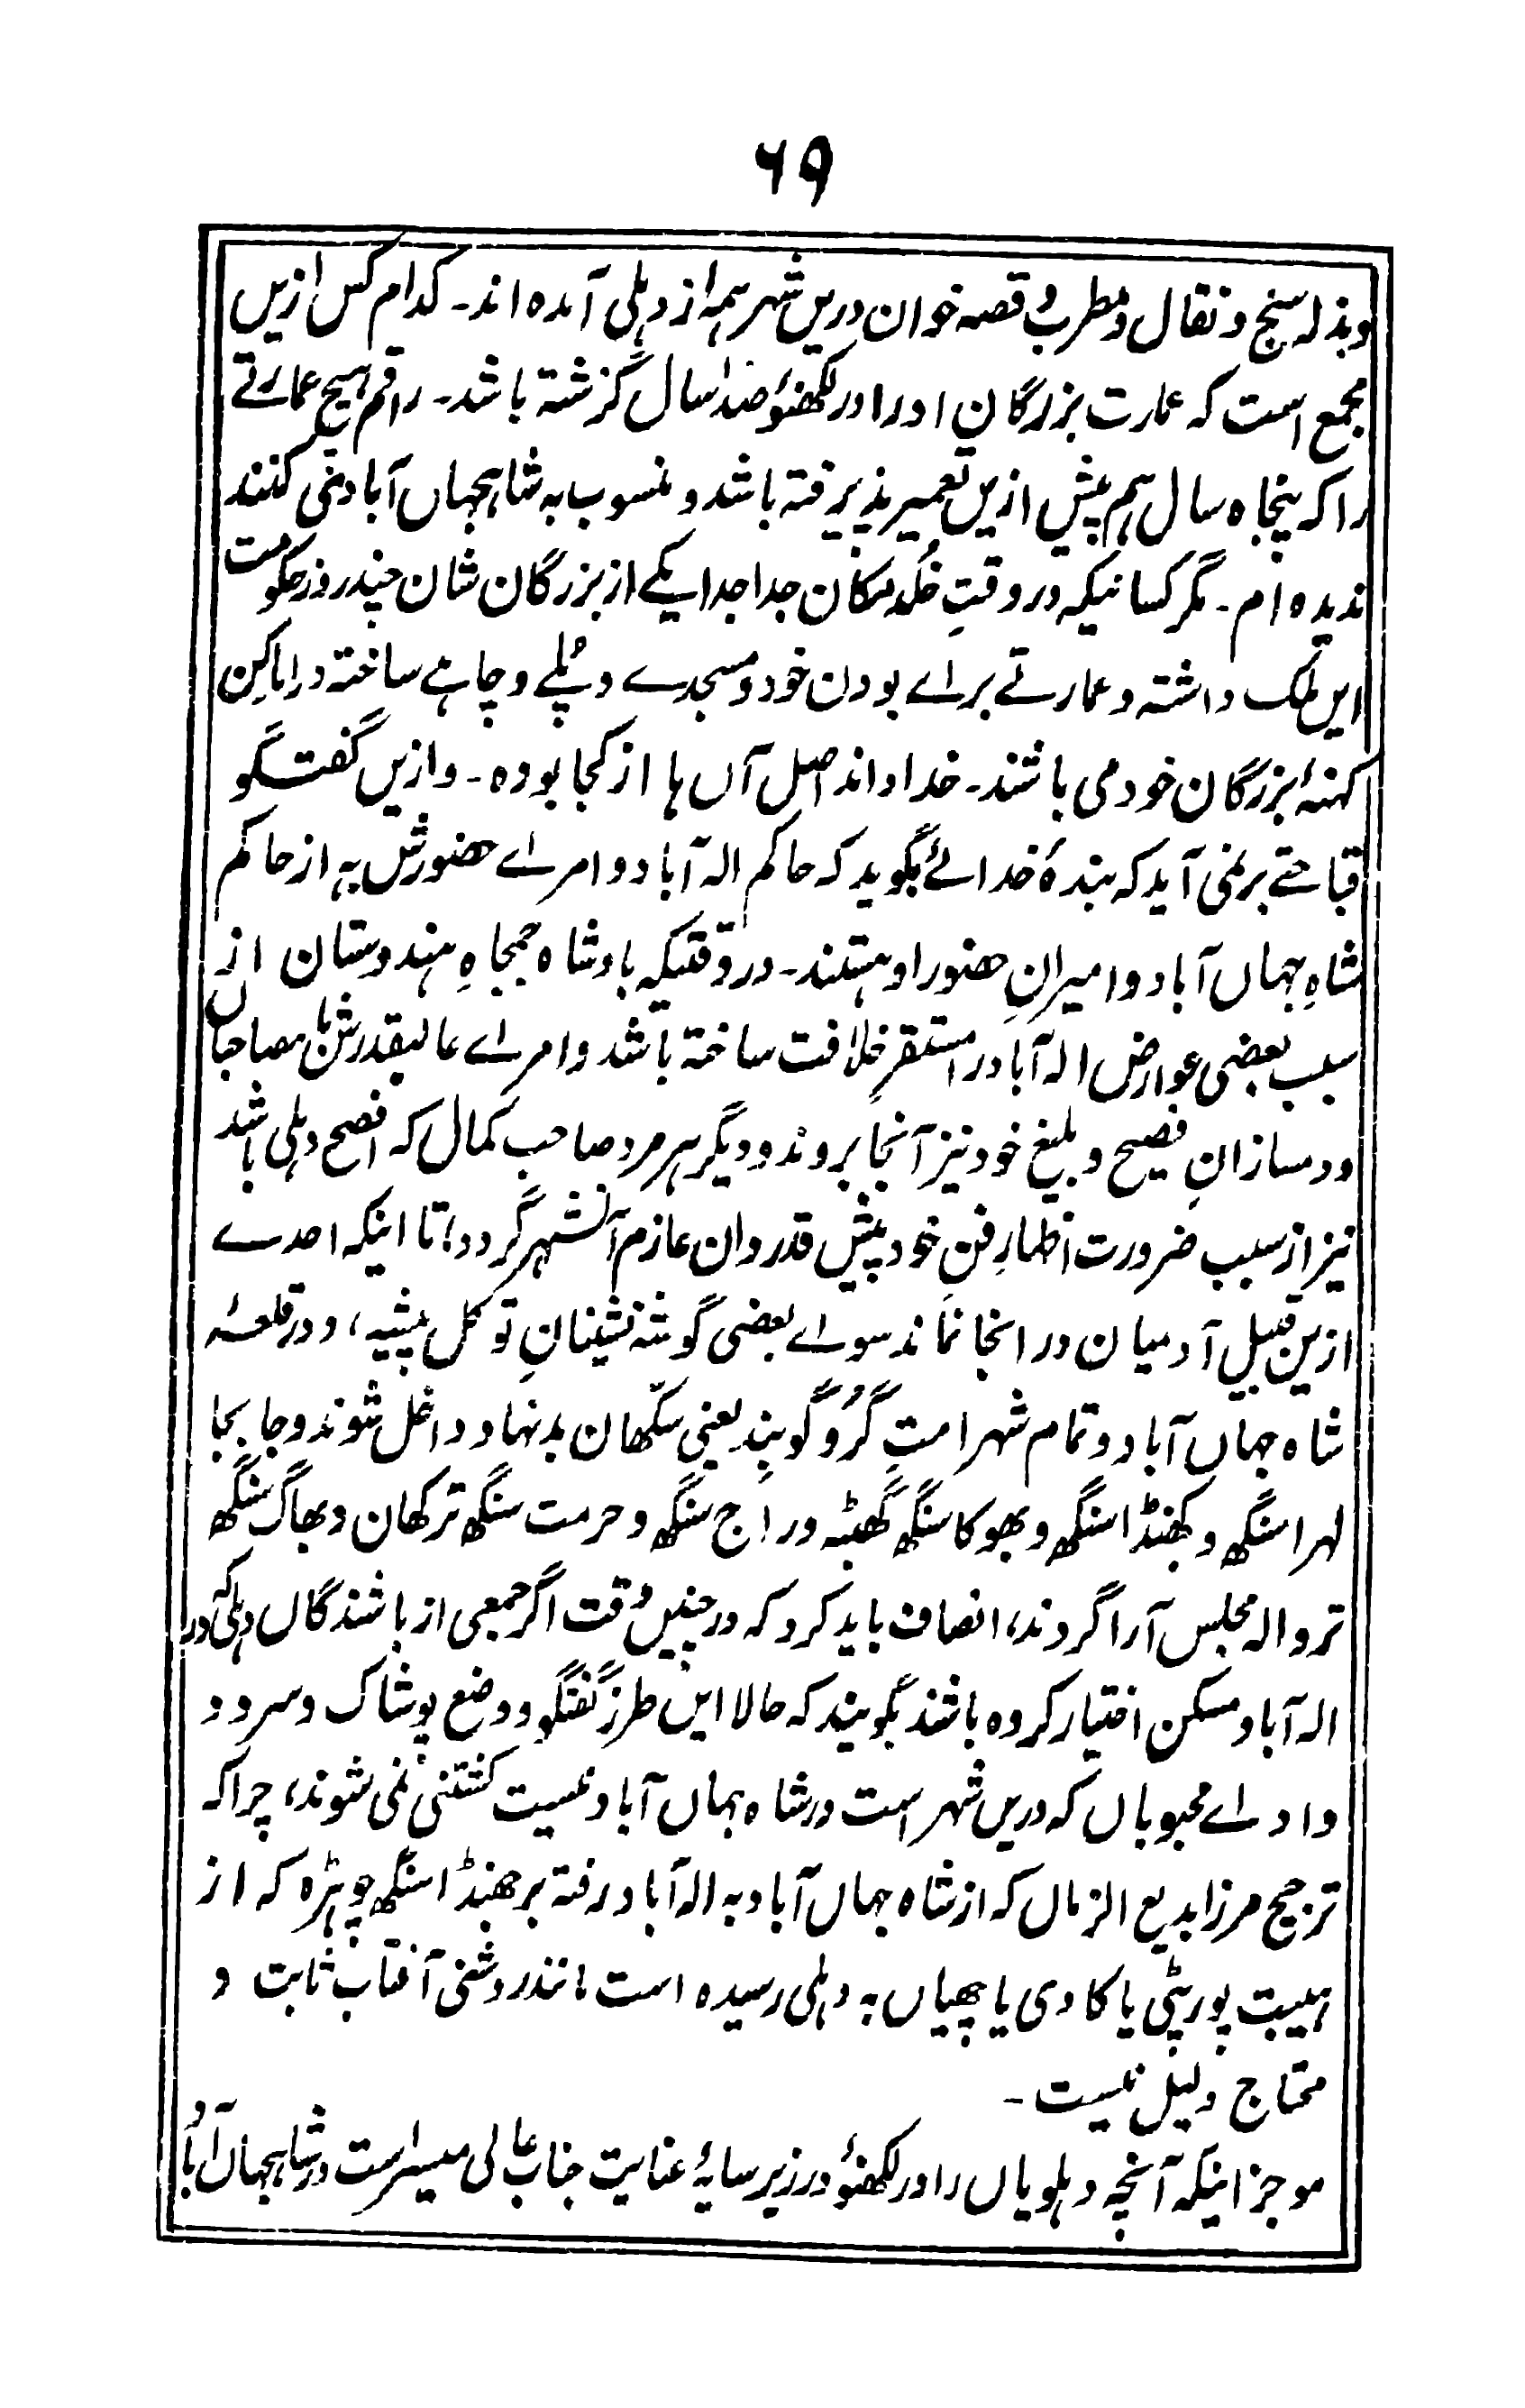 ۶۹
و بذلہ سنج و نقال و مطرب و قصہ خوان دریں شہر ہمہ از دہلی آمدہ اند۔ کدام کس ازیں
مجمع است کہ عمارت بزرگان او را در لکھنؤ صد سال گزشتہ باشد۔ راقم ہیچ عمارتے
را کہ پنجاہ سال ہم پیش ازیں تعمیر پذیرفتہ باشد و منسوب بہ شاہجہاں آباد نمی کنند
ندیدہ ام۔ مگر کسانیکہ در وقتِ خُلد مکان جدا جدا یکے از بزرگان شان چند روز حکومت
ایں ملک داشتہ و عمارتے براے بودن خود و مسجدے و پُلے و چاہے ساختہ در اماکنِ
کہنۂ بزرگان خود می باشند۔ خدا داند اصل آں ہا از کجا بودہ۔ و ازیں گفتگو
قباحتے بر نمی آید کہ بندۂ خدائے بگوید کہ حاکم الہ آباد و امراے حضورش بہ از حاکم
شاہِ جہاں آباد و امیرانِ حضور او ہستند۔ در وقتیکہ بادشاہ جمجاہِ ہندوستان از
سبب بعضی عوارض الہ آباد را مستقر خلافت ساختہ باشد و امراے عالیقدرش با مصاحبان
و دمسازانِ فصیح و بلیغ خود نیز آنجا بروند و دیگر ہر مرد صاحب کمال کہ افصح دہلی باشد
نیز از سبب ضرورت اظہارِ فنِ خود پیش قدردان عازم آنشہر گردد؛ تا اینکہ احدے
ازین قبیل آدمیان در انجا نماند سواے بعضی گوشہ نشینانِ توکل پیشہ، و در قلعۂ
شاہ جہاں آباد و تمام شہر امتِ گُرو گوبِند یعنی سکّھان بدنہاد داخل شوند و جا بجا
لہرا سنگھ و کھنڈا سنگھ و بھوکا سنگھ گھبٹہ و راج سنگھ و حرمت سنگھ ترکھان و بھاگ سنگھ
تروالہ مجلس آرا گردند، انصاف باید کرد کہ در چنیں وقت اگر جمعی از باشندگاں دہلی کہ در
الہ آباد مسکن اختیار کردہ باشند بگویند کہ حالا ایں طرز گفتگو و وضع پوشاک و سرود و
و اداے محبوباں کہ دریں شہر است در شاہ جہاں آباد نیست کشتنی نمی شوند، چرا کہ
ترجیح مرزا بدیع الزماں کہ از شاہ جہاں آباد بہ الہ آباد رفتہ بر جھنڈا سنگھ چوہڑہ کہ از
ہیبت پورپٹی یا کاوی یا پچھیاں بہ دہلی رسیدہ است مانند روشنی آفتاب ثابت و
محتاج دلیل نیست۔
موجز اینکہ آنچہ دہلویاں را در لکھنؤ در زیر سایۂ عنایت جناب عالی میسر است در شاہجہاں آباد